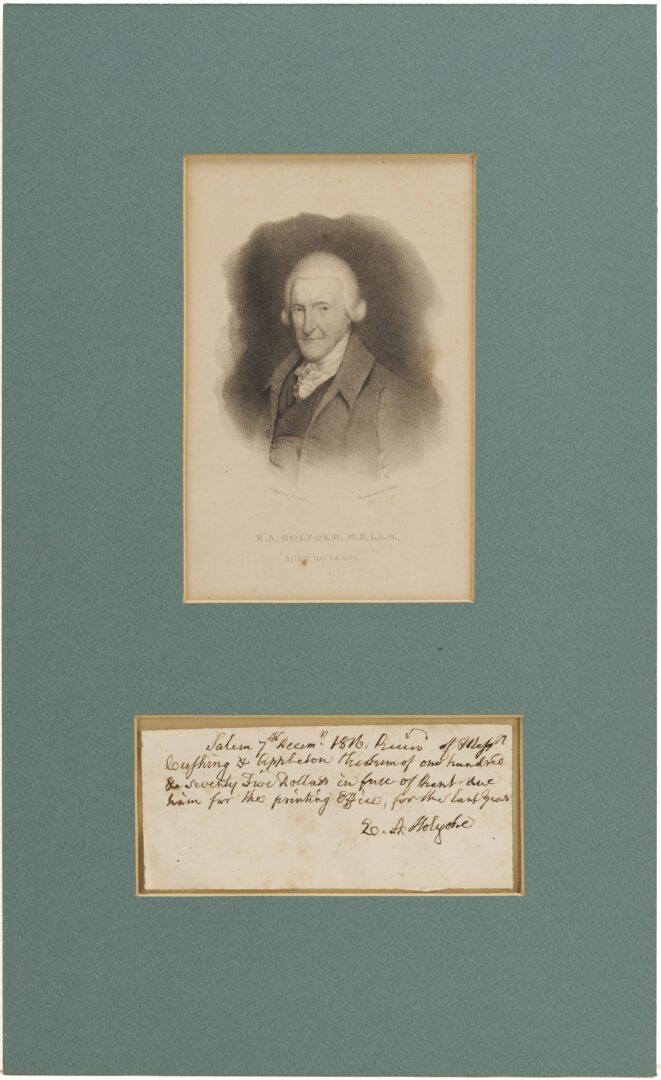 E. A. HOLYOKE, M.D. L.L.D.
AGED 100 YEARS.
Salem 7th Decemr 1816. Receiv'd of Messrs
Cushing & Appleton the Sum of one hundred
& seventy Five Dollars in full of Rent due
him for the printing Office, for the last Year
E. A. Holyoke